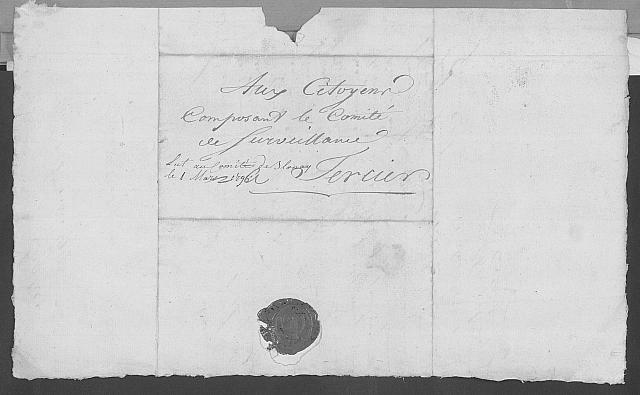 Aux Citoyens
Composant le Comité
de Surveillance
Lut au Comité de Blonay
le 1 Mars
à Vercier